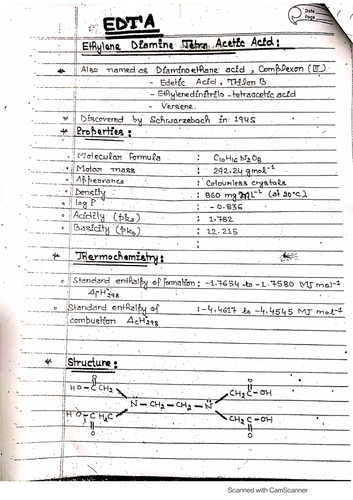 Date
Page
EDTA
Ethylene Diamine Tetra Acetic Acid :
* Also named as Diaminoethane acid, Complexon (III)
- Edetic Acid, Trilon B
- Ethylenedinitrilo-tetraacetic acid
- Versene.
* Discovered by Schwarzebach in 1945
* Properties :
Molecular Formula : C10H16N2O8
Molar mass : 292.24 gmol-1
Appearance : Colourless crystals
Density : 860 mg mL-1 (at 20°C)
log P : -0.836
Acidity (pka) : 1.782
Basicity (pkb) : 12.215
:
* Thermochemistry :
Standard enthalpy of formation : -1.7654 to -1.7580 MJ mol-1
ΔfH°298
Standard enthalpy of : -4.4617 to -4.4545 MJ mol-1
combustion ΔcH°298
* Structure :
O O
HO-C CH2 CH2 C-OH
N-CH2-CH2-N
HO-C H2C CH2 C-OH
O O
Scanned with CamScanner